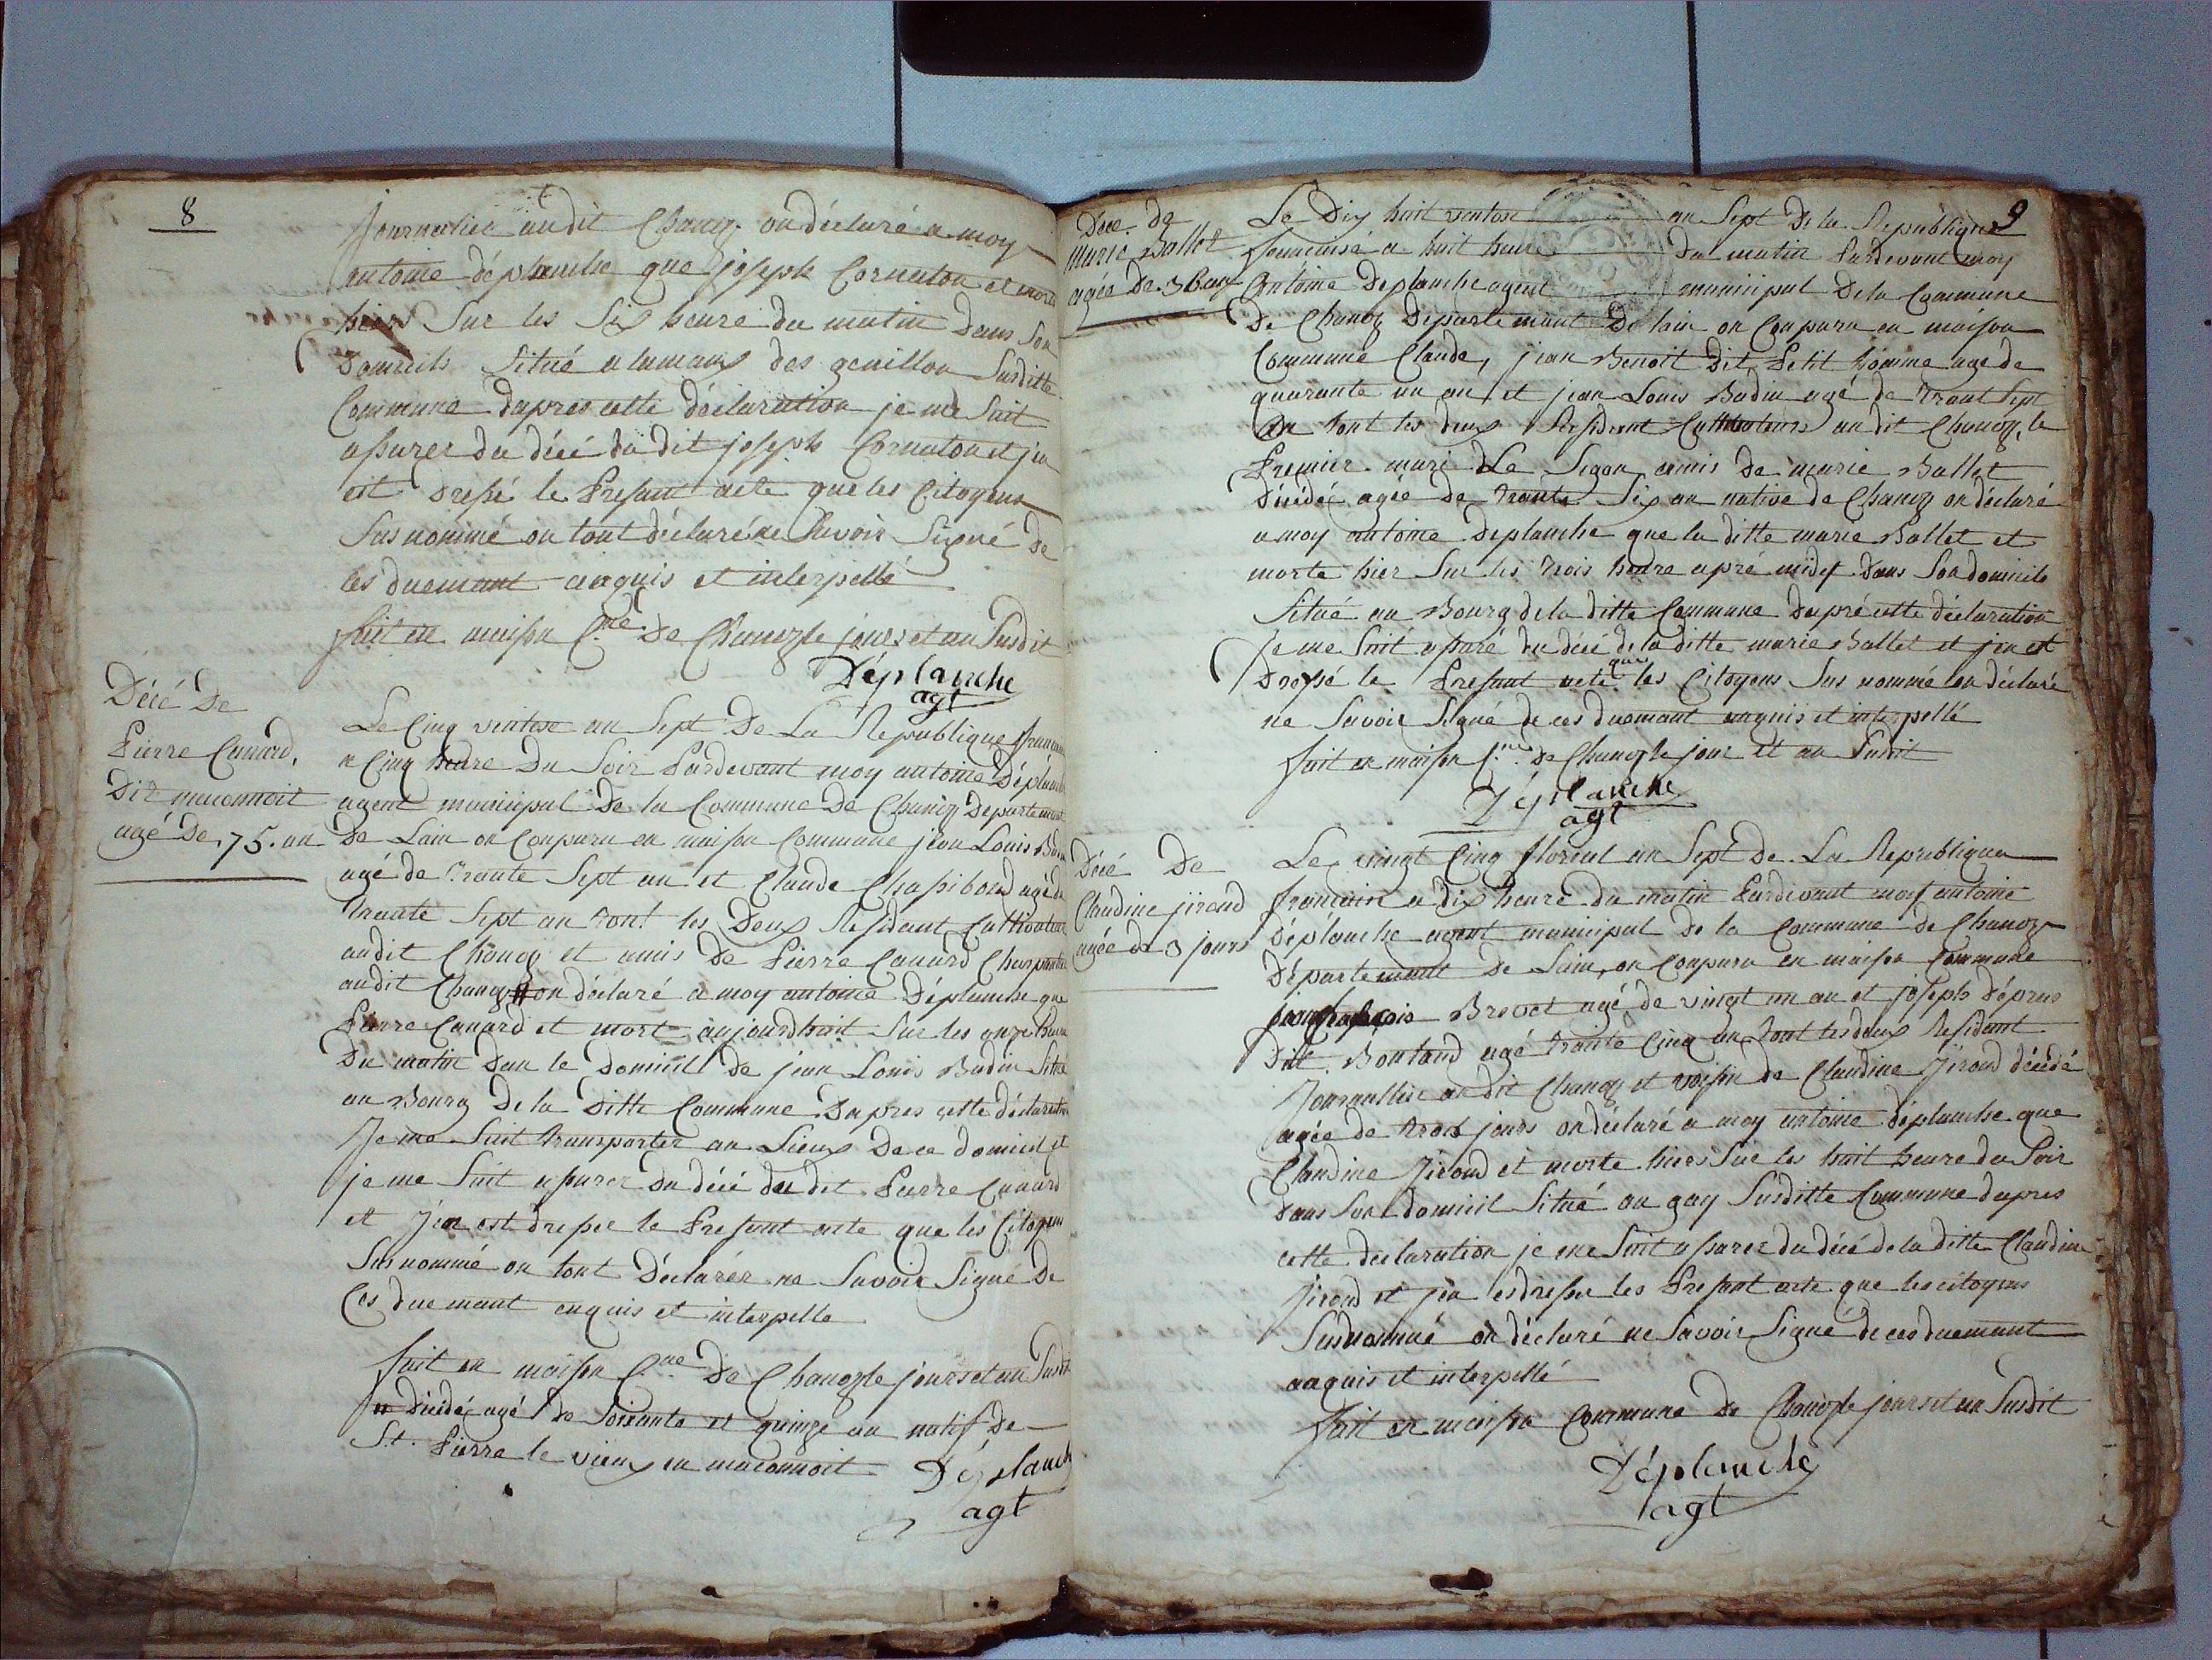 8
Journalier audit Chanoz on déclaré a moy
antoine déplanche que joseph Cornaton et mort
hiers Sur les Six heure du matin Dans Son
Domicile Situé a lamaux des genillon Susditte
Commune Dapres cette déclaration je me Suit
assurer du décé du dit joseph Cornaton et jen
est dressé le Present acte que les Citoyens
Sus nommé on tout déclaré ne Savoir Signé de
ces duemant anquis et interpellé
fait en maison C.ne De Chanoz le jours et an Susdit
Déplanche
agt
Décé De
Pierre Canard,
Dit maconnoit
agé De 75. an
Le Cinq ventose an Sept De La Republique
a Cinq heure Du Soir Pardevant moy antoine Déplanche
agent municipal De la Commune De Chanoz Departement
De Lain on Conparu en maison Commune jean Louis Badin
agé de Trante Sept an et Claude Chapibond agé de
trante Sept an tout les Deux Residant Cultivateur
audit Chanoz et amis De Pierre Canard Charpantier
audit Chanoz # on déclaré a moy antoine Déplanche que
Pierre Canard et mort aujourdhuit Sur les onze heure
Du matin Dan le Domicil De jean Louis Badin Situé
au Bourg De la Ditte Commune Dapres cette déclaration
Je me Suit transporter au Lieux De ce domicil et
je me Suit assurer du décé du dit Pierre Canard
et Jen est dressee le Presant acte que les Citoyens
Sus nommé on tout Déclarér ne Savoir Signé De
Ces duemant enquis et interpelle
fait en maison C.ne De Chanoz le jours et an Susdit
# Décédé agé de Soisante et quinze an natif De
St. Pierre le vieux en maconnoit Déplanche
agt
9
Déce. de
Marie Ballet
agée De 36 an
Le Dix huit ventose an Sept De la Republique
francaise a huit heure Du matin Pardevant moy
Antoine Deplanche agent municipal De la Commune
De Chanoz Departemant De lain on Conparu en maison
Commune Claude, jean Benoit Dit Petit homme age de
quarante un an et jean Louis Badin agé de Trant Sept
an tout les deux Residant Cultivateurs audit Chanoz, le
Premier mari Le Segon amis De marie Ballet
Décédé agée de trante Six an native de Chanoz on déclaré
a moy antoine Deplanche que la ditte marie Ballet et
morte hier Sur les trois heure apré midy Dans Son domicile
Situé au Bourg de la ditte Commune Dapré cette déclaration
Je me Suit assuré du décé de la ditte marie Ballet et jen est
Dressé le Presant acte que les Citoyens Sus nommé on déclaré
ne Savoir Signé de ces duemant enquis et interpellé
fait en maison C.ne De Chanoz le jour et an Susdit
Déplanche
agt
Décé De
Claudine jiroud
agée de 3 jours
Le vingt Cinq floreal an Sept de La Republique
francaise a dix heure du matin Pardevant moy antoine
Déplanche agent municipal De la Commune de Chanoz
Départemant De Lain, on Conparu en maison Commune
Brevet agé de vingt un an et joseph Dépras
Ditt Bontand agé trante Cinq an tout les deux Residant
Journallier au dit Chanoz et voisin de Claudine Jiroud décédé
agée de trois jours on déclaré a moy antoine déplanche que
Claudine Jiroud et morte hiers Sur les huit heure du Soir
Dans Son domicil Situé au gay Susditte Commune dapres
cette declaration je me Suit assurer du décé de la ditte Claudine
Jiroud et jen es dressee les Presant acte que les citoyens
Susnommé on déclaré ne Savoir Signé de ces duemant
anquis et interpellé
fait en maison Commune De Chanoz le jours et an Susdit
Déplanche
agt